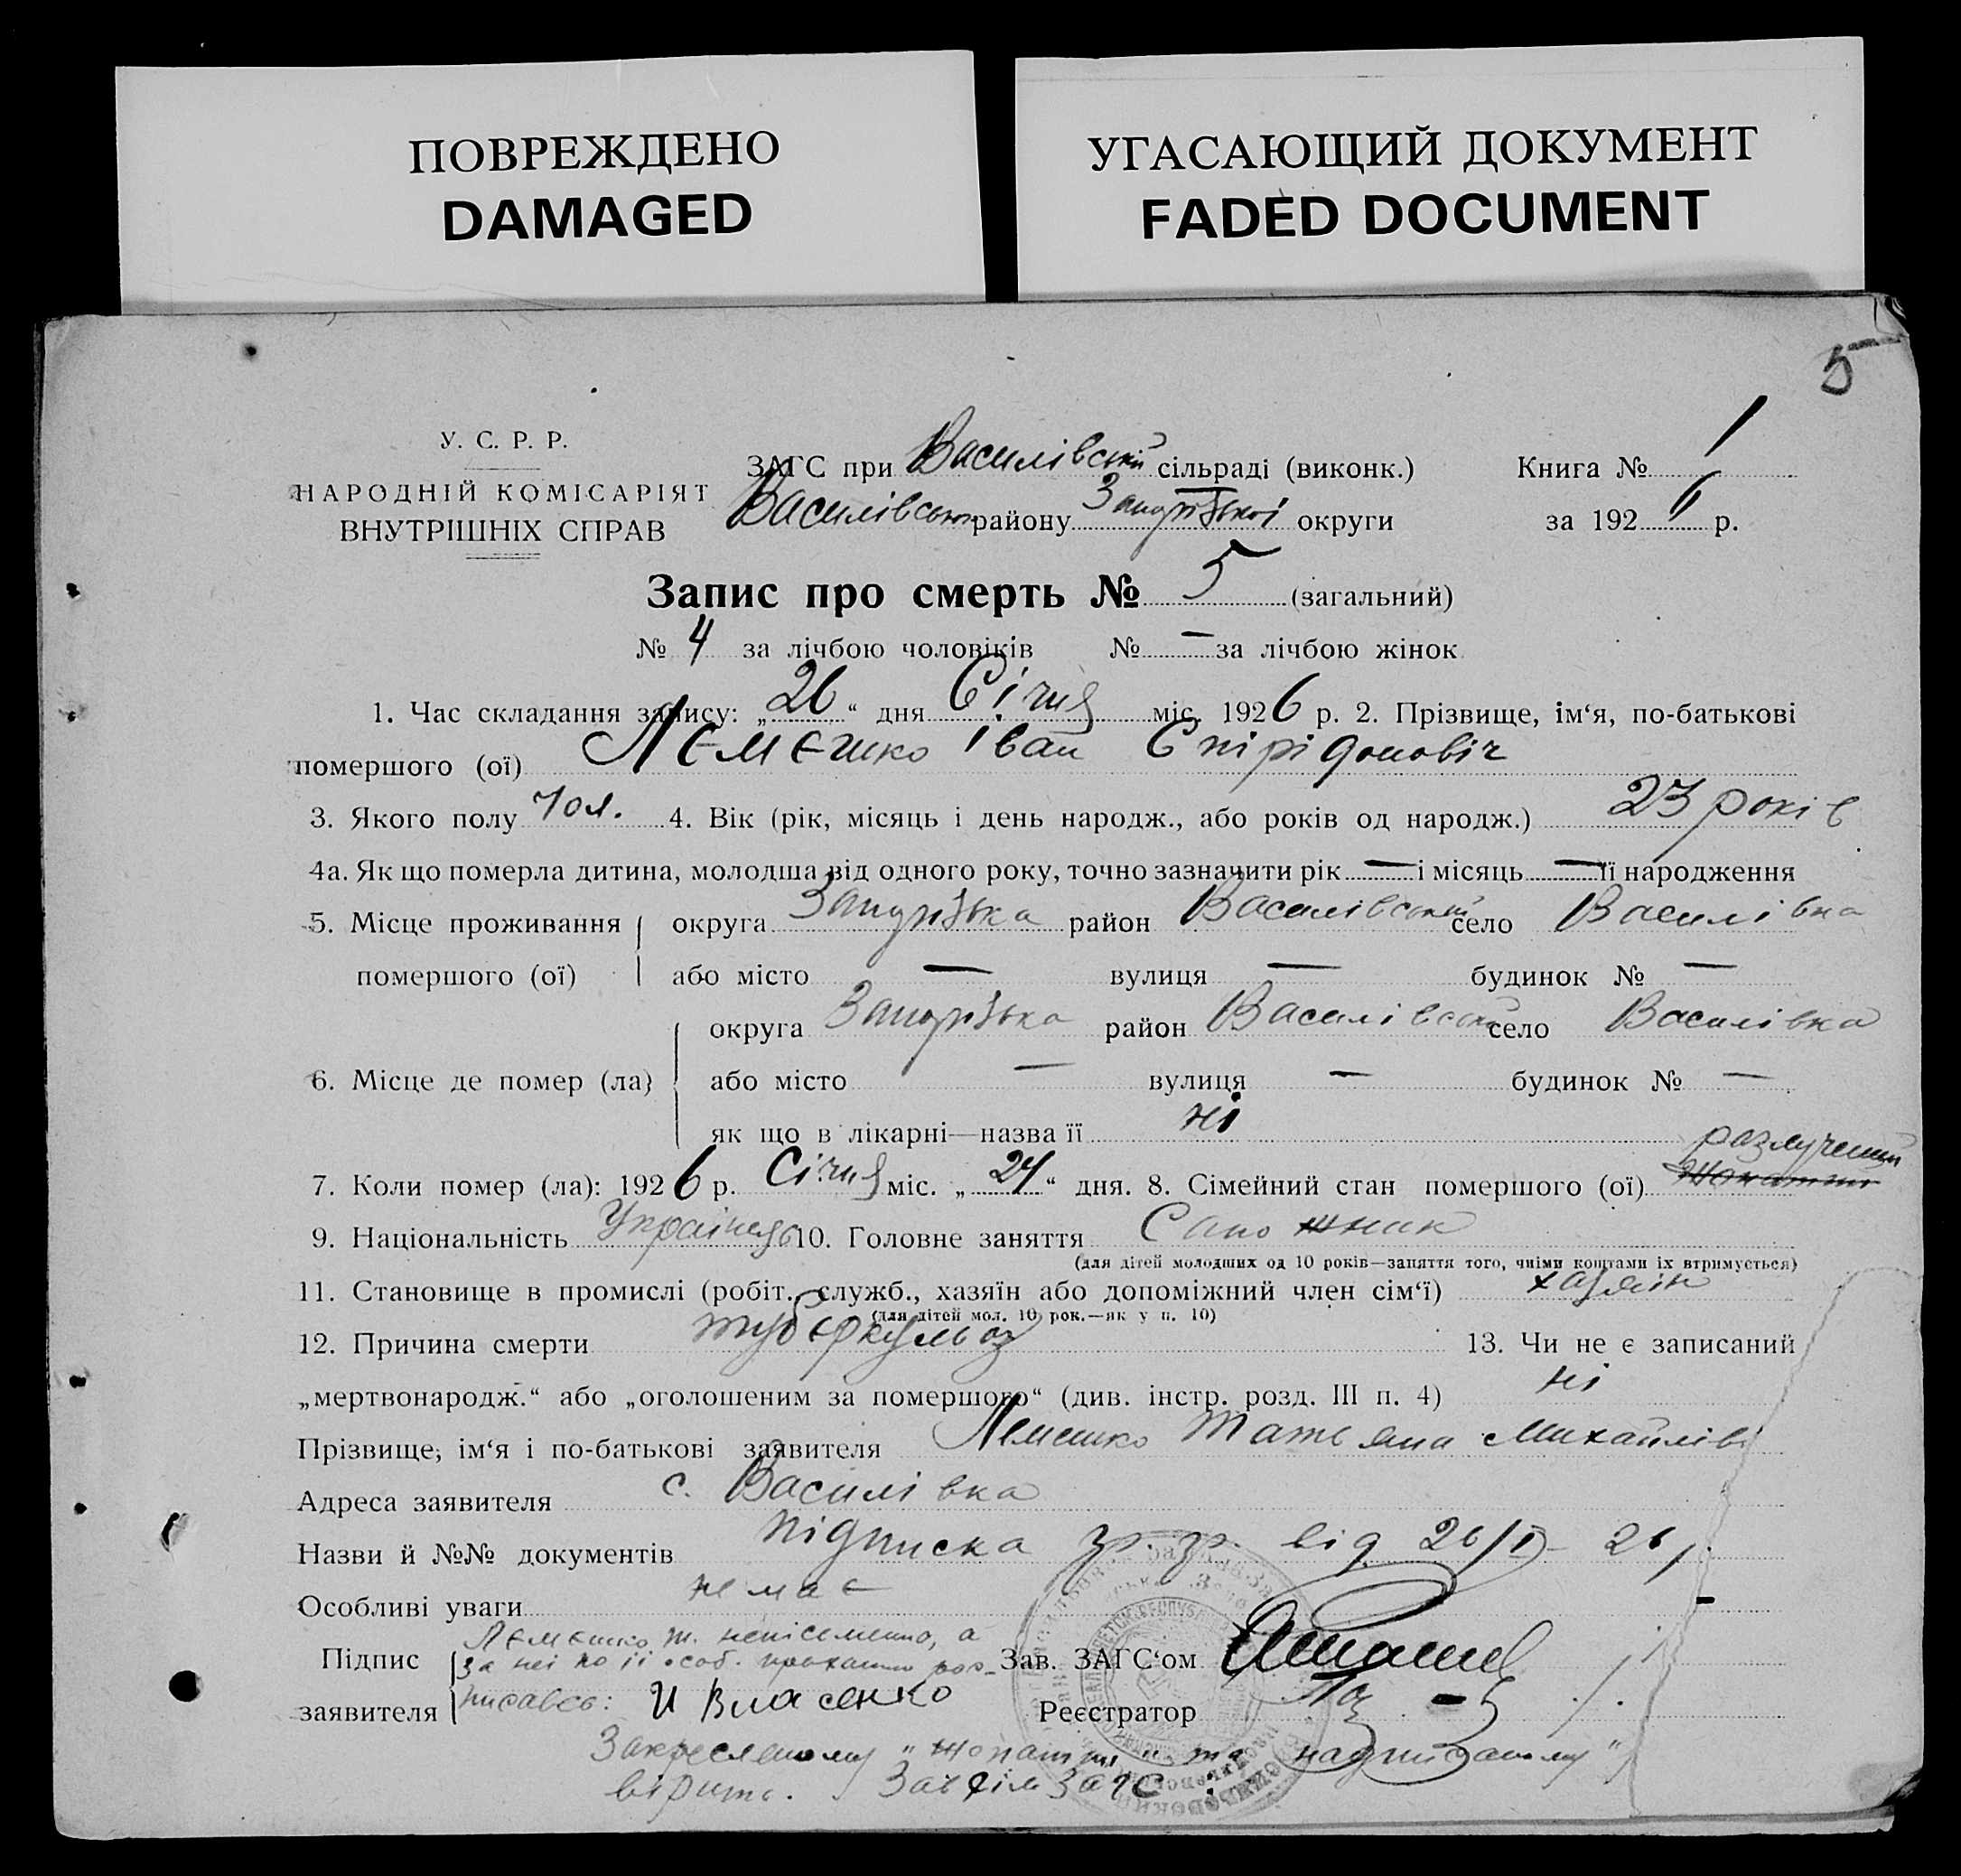 ПОВРЕЖДЕНО
DAMAGED
УГАСАЮЩИЙ ДОКУМЕНТ
FADED DOCUMENT
5
У. С. Р. Р.
НАРОДНІЙ КОМІСАРІЯТ
ВНУТРІШНІХ СПРАВ
ЗАГС при Василівській сільраді (виконк.)
Василівського району Запорізької округи
Книга № 1
за 192 6 р.
Запис про смерть № 5 (загальний)
№ 4 за лічбою чоловіків № — за лічбою жінок
1. Час складання запису: „ 26 “ дня Січня міс. 1926 р. 2. Прізвище, ім‘я, по-батькові
помершого (ої) Лємєшко Іван Спірідоновіч
3. Якого полу чол. 4. Вік (рік, місяць і день народж., або років од народж.) 23 років
4а. Як що померла дитина, молодша від одного року, точно зазначити рік — і місяць — її народження
5. Місце проживання помершого (ої) округа Запорізька район Василівський село Василівка
або місто — вулиця — будинок № —
6. Місце де помер (ла) округа Запорізька район Василівський село Василівка
або місто — вулиця — будинок № —
як що в лікарні—назва її ні
разлучений
7. Коли помер (ла): 1926 р. Січня міс. „ 24 “ дня. 8. Сімейний стан помершого (ої) Жонатий
9. Національність Українець 10. Головне заняття Сапожник
(для дітей молодших од 10 років—заняття того, чиїми коштами їх втримується)
11. Становище в промислі (робіт., служб., хазяїн або допоміжний член сім‘ї) хазяїн
(для дітей мол. 10 рок.—як у п. 10)
12. Причина смерти тубєркульоз 13. Чи не є записаний
„мертвонародж.“ або „оголошеним за помершого“ (див. інстр. розд. III п. 4) ні
Прізвище, ім‘я і по-батькові заявителя Лемешко Татьяна Михайлів
Адреса заявителя с. Василівка
Назви й №№ документів підписка від 26/I- 26 р.
Особливі уваги немає
Підпис заявителя Лємєшко Т. непісьменна, а
за неї по її особ. проханню роз-
писавсь: И Власенко
Зав. ЗАГС‘ом
Реєстратор
Закресленому „жонатий“ та надписаному
вірить. Завідім Загс